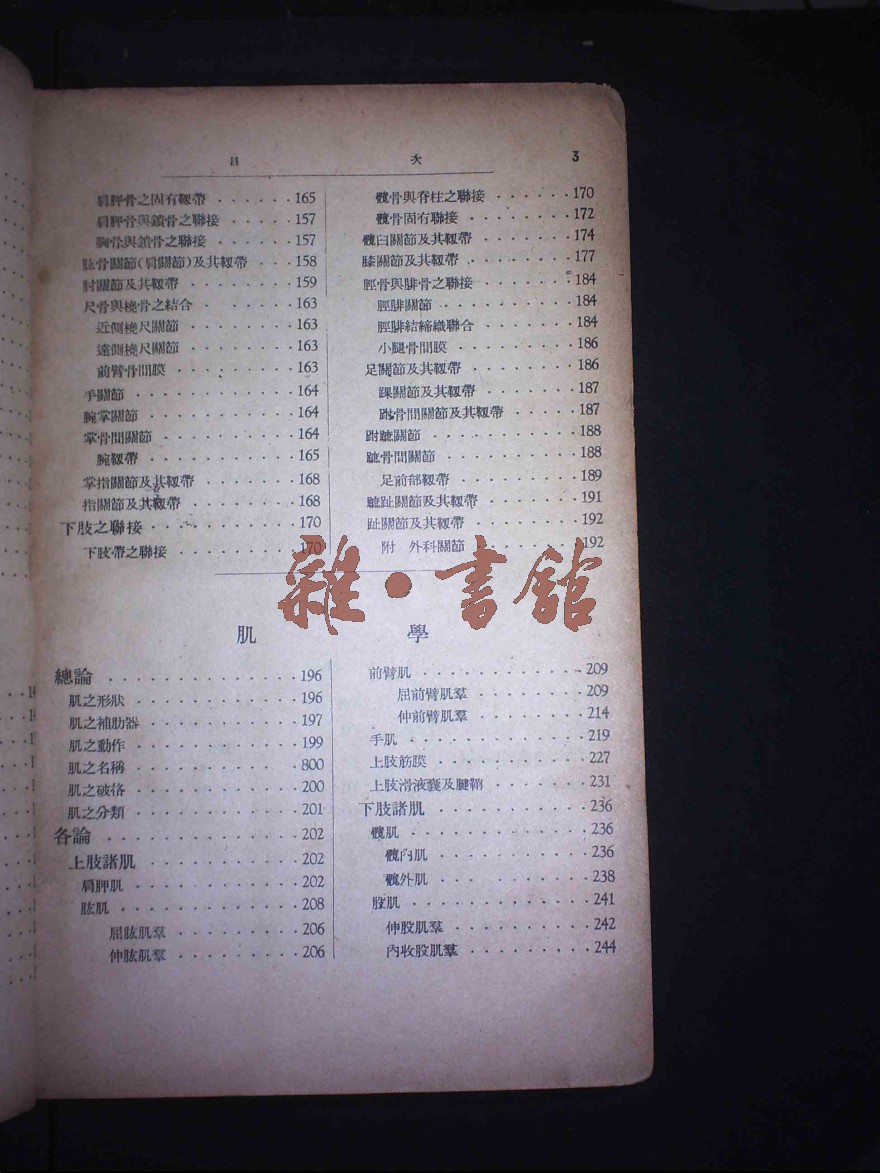 目 次 3
肩胛骨之固有靱帶 165
肩胛骨與鎖骨之聯接 157
胸骨與鎖骨之聯接 157
肱骨關節(肩關節)及其靱帶 158
肘關節及其靱帶 159
尺骨與橈骨之結合 163
近側橈尺關節 163
遠側橈尺關節 163
前臂骨間膜 163
手關節 164
腕掌關節 164
掌骨間關節 164
腕靱帶 165
掌指關節及其靱帶 168
指關節及其靱帶 168
下肢之聯接 170
下肢帶之聯接 170
髖骨與脊柱之聯接 170
髖骨固有聯接 172
髖臼關節及其靱帶 174
膝關節及其靱帶 177
脛骨與腓骨之聯接 184
脛腓關節 184
脛腓結締織聯合 184
小腿骨間膜 186
足關節及其靱帶 186
踝關節及其靱帶 187
跗骨間關節及其靱帶 187
跗蹠關節 188
蹠骨間關節 188
足前部靱帶 189
蹠趾關節及其靱帶 191
趾關節及其靱帶 192
附 外科關節 192
雜·書館
肌 學
總論 196
肌之形狀 196
肌之補助器 197
肌之動作 199
肌之名稱 800
肌之破格 200
肌之分類 201
各論 202
上肢諸肌 202
肩胛肌 202
肱肌 208
屈肱肌羣 206
伸肱肌羣 206
前臂肌 209
屈前臂肌羣 209
伸前臂肌羣 214
手肌 219
上肢筋膜 227
上肢滑液囊及腱鞘 231
下肢諸肌 236
髖肌 236
髖內肌 236
髖外肌 238
股肌 241
伸股肌羣 242
內收股肌羣 244